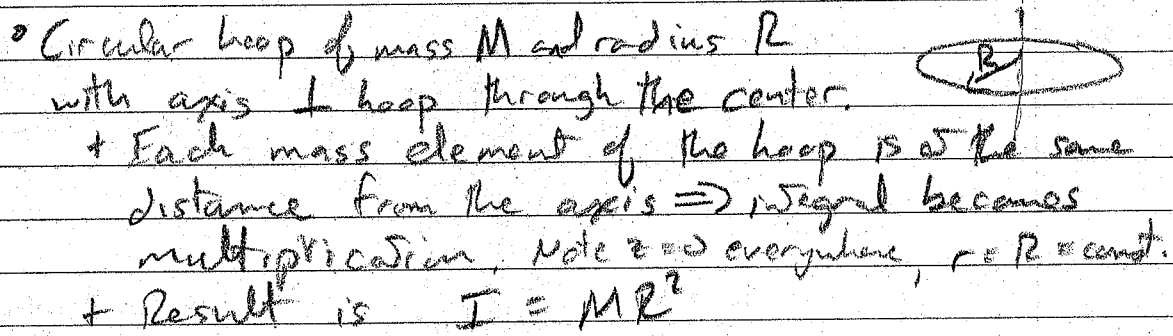 ° Circular hoop of mass M and radius R
R
with axis ⊥ hoop through the center.
+ Each mass element of the hoop is at the same
distance from the axis => integral becomes
multiplication. Note z=0 everywhere, r=R=const.
+ Result is I = MR²